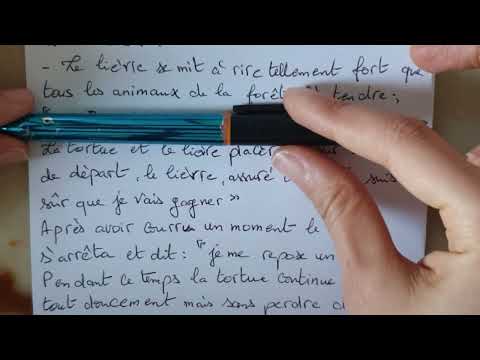 - Le lièvre se mit à rire tellement fort que
tous les animaux de la forêt tendre ;
La tortue et le lièvre
de départ, le lièvre, assuré suis
sûr que je vais gagner »
Après avoir couru un moment le
s'arrêta et dit : " je me repose un
Pendant ce temps la tortue continue
tout doucement mais sans perdre